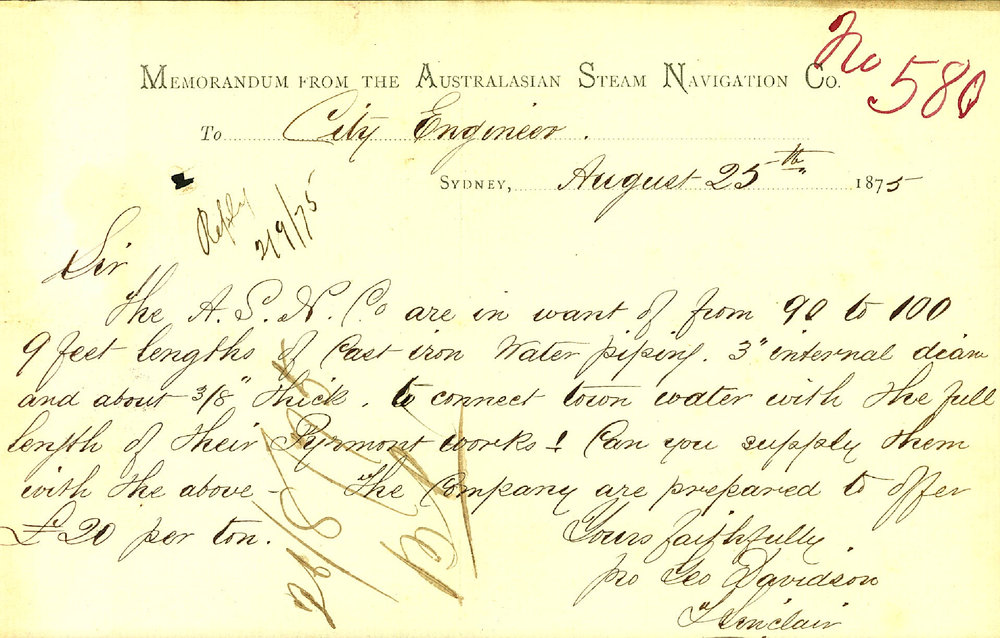 No 580
MEMORANDUM FROM THE AUSTRALASIAN STEAM NAVIGATION CO.
To City Engineer.
SYDNEY, August 25th 1875
Reply
2/9/75
Sir
The A. S. N. Co are in want of from 90 to 100
9 feet lengths of Cast iron Water piping. 3" internal diam
and about 3/8" thick. to connect town water with the full
length of their Pyrmont works! Can you supply them
with the above - The Company are prepared to offer
£20 per ton. Yours faithfully
pro Geo Davidson
Sinclair
26/8/75